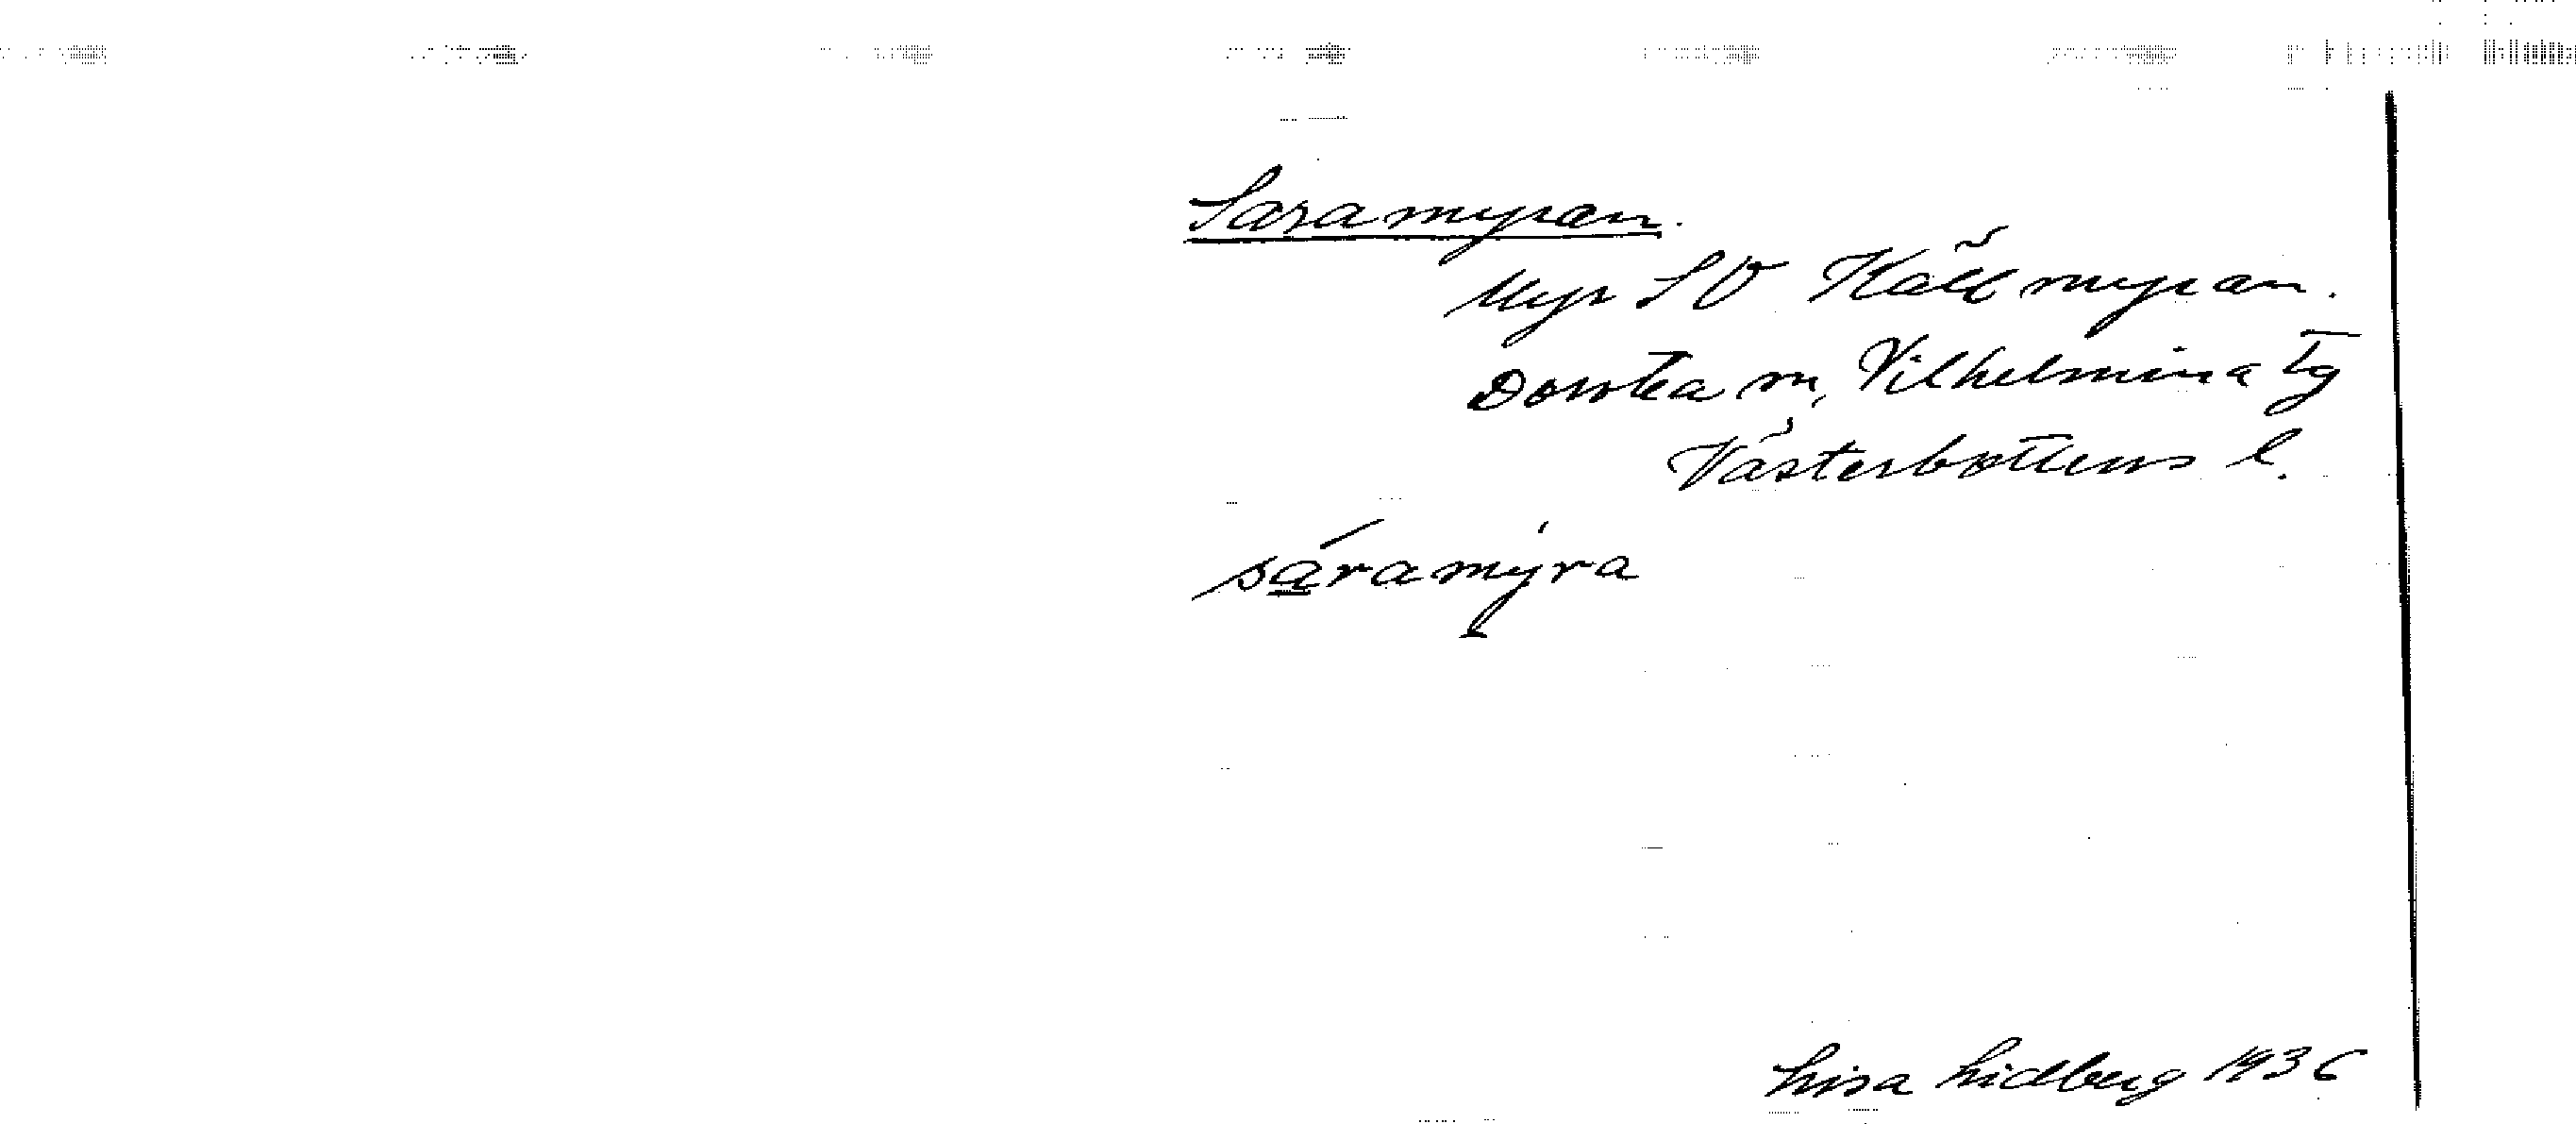 Saramyran.
Myr SV Källmyran.
Dorotea sn, Vilhelmina tg
Västerbottens l.
sa̲̍ramy̍ra
Lisa Lidberg 1936